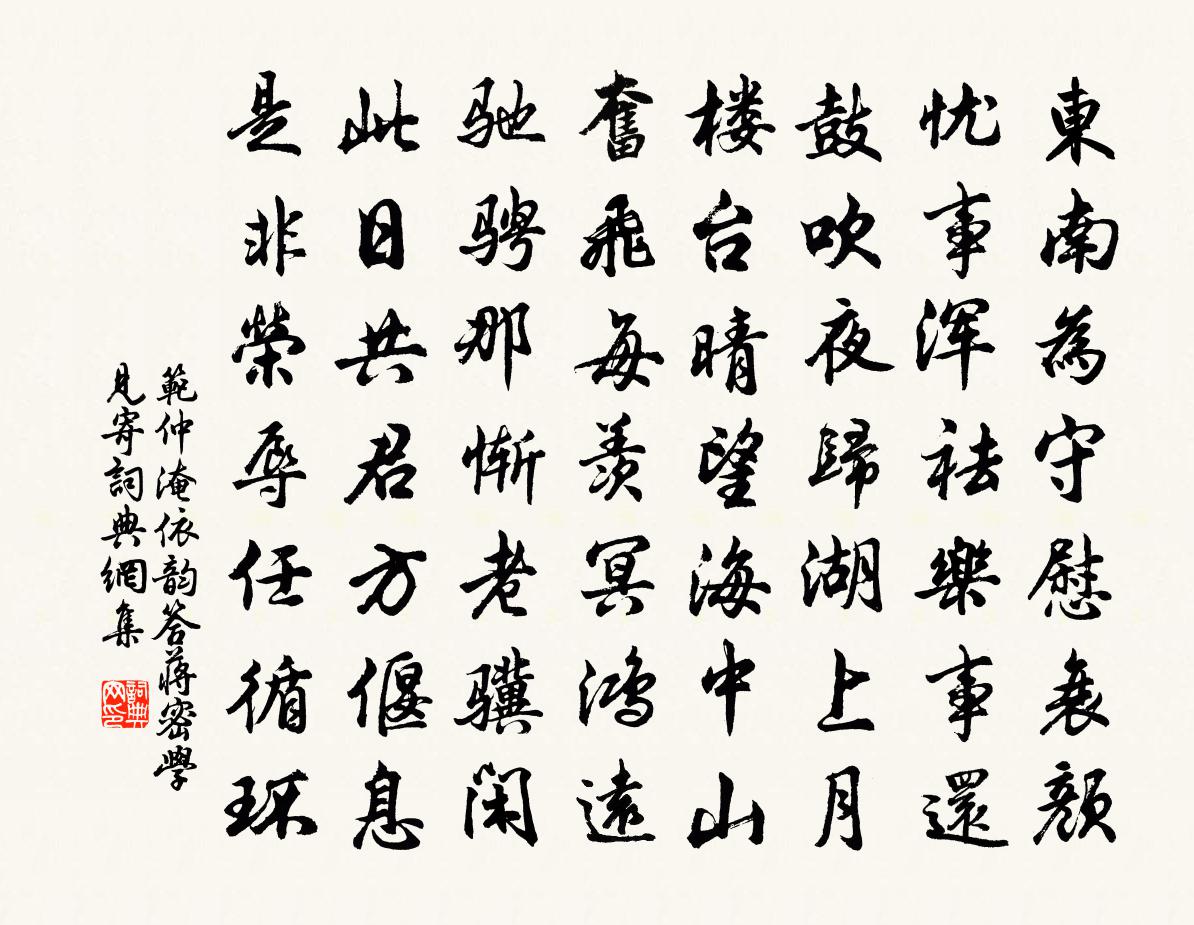 東南為守慰衰顏
忧事浑祛樂事還
鼓吹夜歸湖上月
楼台晴望海中山
奮飛每羨冥鴻遠
驰骋那惭老骥闲
此日共君方偃息
是非榮辱任循环
範仲淹依韵答蒋密學
見寄詞典網集
詞典
网印